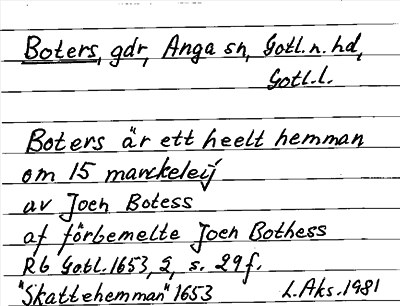 Boters, gdr, Anga sn, Gotl. n. hd,
Gotl.l.
Boters är ett heelt hemman
om 15 marckeleij
av Joen Botess
af förbemelte Joen Bothess
Rb Gotl. 1653, 2, s. 29f.
"Skattehemman" 1653 L. Aks. 1981